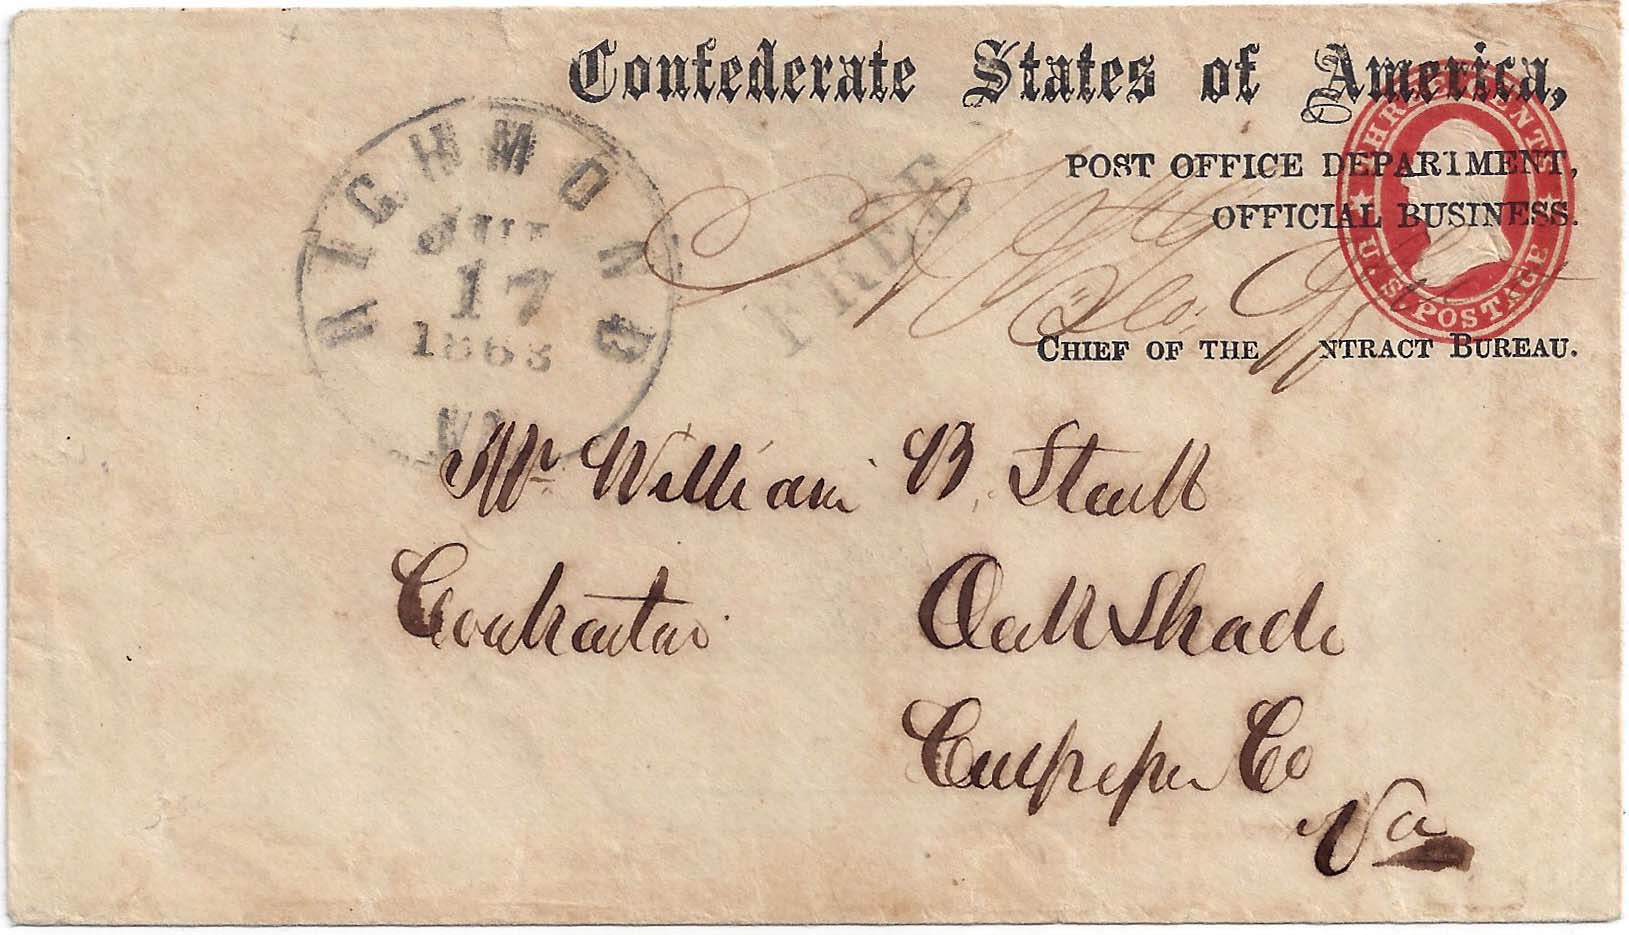 Confederate States of America,
THREE CENTS
U.S. POSTAGE
POST OFFICE DEPARTMENT,
OFFICIAL BUSINESS.
FREE
RICHMOND
JUL
17
1863
VA.
CHIEF OF THE NTRACT BUREAU.
Mr William B. Stark
Contractor Oak Shade
Culpeper Co
Va